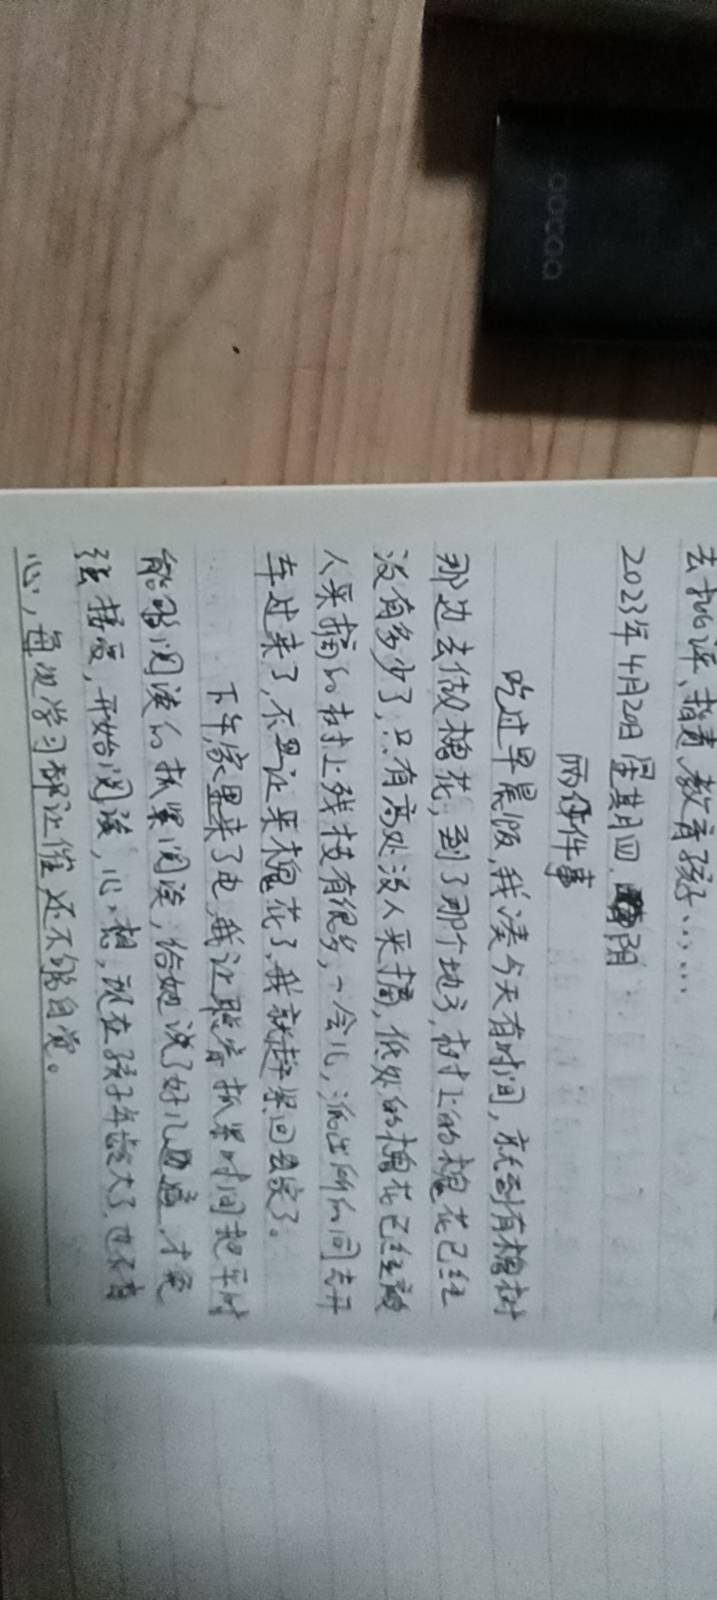 去批评、指责、教育孩子……
2023年4月20日 星期四. 阴
两件事
吃过早晨饭,我凑今天有时间,就到有槐树
那边去做槐花,到了那个地方,树上的槐花已经
没有多少了,只有高处没人采摘,低处的槐花已经被
人采摘的树上残枝有很多,一会儿,派出所的同志开
车过来了,不要让采槐花了,我就赶紧回家了。
下午,家里来了电,我让 抓紧时间把平时
能够阅读的抓紧阅读,给她说了好几遍,才勉
强接受,开始阅读,心想,现在孩子年龄大了,也不省
心,每次学习都让催还不够自觉。